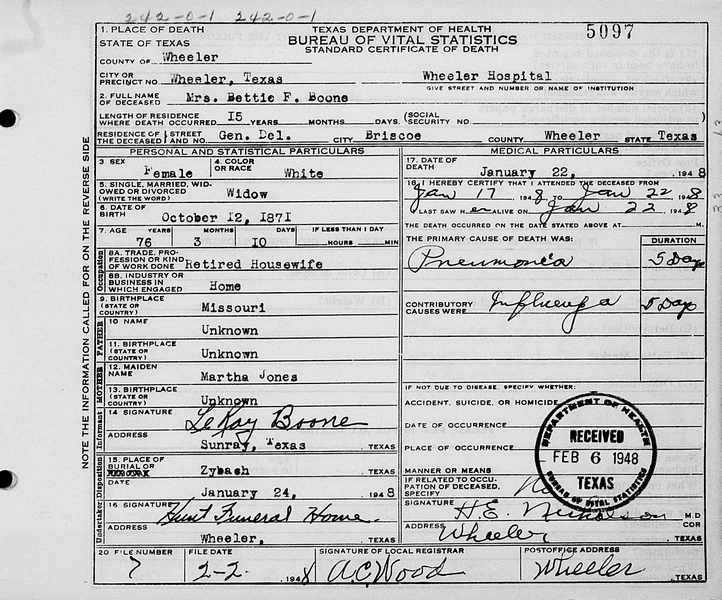 242-0-1 242-0-1
1. PLACE OF DEATH
STATE OF TEXAS
TEXAS DEPARTMENT OF HEALTH
BUREAU OF VITAL STATISTICS
STANDARD CERTIFICATE OF DEATH
5097
COUNTY OF Wheeler
CITY OR PRECINCT NO. Wheeler, Texas
Wheeler Hospital
GIVE STREET AND NUMBER OR NAME OF INSTITUTION
2. FULL NAME OF DECEASED Mrs. Bettie F. Boone
LENGTH OF RESIDENCE WHERE DEATH OCCURRED 15 YEARS MONTHS DAYS (SOCIAL SECURITY NO. )
RESIDENCE OF THE DECEASED STREET AND NO. Gen. Del. CITY Briscoe COUNTY Wheeler STATE Texas
PERSONAL AND STATISTICAL PARTICULARS
3 SEX Female
4. COLOR OR RACE White
5. SINGLE, MARRIED, WIDOWED OR DIVORCED (WRITE THE WORD) Widow
6. DATE OF BIRTH October 12, 1871
7. AGE YEARS MONTHS DAYS IF LESS THAN 1 DAY
76 3 10 HOURS MIN
Occupation
8A. TRADE, PROFESSION OR KIND OF WORK DONE Retired Housewife
8B. INDUSTRY OR BUSINESS IN WHICH ENGAGED Home
9. BIRTHPLACE (STATE OR COUNTRY) Missouri
FATHER
10 NAME Unknown
11. BIRTHPLACE (STATE OR COUNTRY) Unknown
MOTHER
12. MAIDEN NAME Martha Jones
13. BIRTHPLACE (STATE OR COUNTRY) Unknown
Informant
14 SIGNATURE LeRay Boone
ADDRESS Sunray, Texas TEXAS
Disposition
15. PLACE OF BURIAL OR Zybach TEXAS
DATE January 24, 1948
Undertaker
16 SIGNATURE Hunt Funeral Home.
ADDRESS Wheeler, TEXAS
MEDICAL PARTICULARS
17. DATE OF DEATH January 22, 1948
18. I HEREBY CERTIFY THAT I ATTENDED THE DECEASED FROM
Jan 17 1948 TO Jan 22 1948
I LAST SAW HER ALIVE ON Jan 22 1948
THE DEATH OCCURRED ON THE DATE STATED ABOVE AT M.
THE PRIMARY CAUSE OF DEATH WAS: DURATION
Pneumonia 5 Days
CONTRIBUTORY CAUSES WERE Influenza 5 Days
IF NOT DUE TO DISEASE, SPECIFY WHETHER:
ACCIDENT, SUICIDE, OR HOMICIDE
DATE OF OCCURRENCE
PLACE OF OCCURRENCE
MANNER OR MEANS
IF RELATED TO OCCUPATION OF DECEASED, SPECIFY No
SIGNATURE H.E. Nicholson M.D
ADDRESS Wheeler COR TEXAS
DEPARTMENT OF HEALTH
RECEIVED
FEB 6 1948
TEXAS
BUREAU OF VITAL STATISTICS
20 FILE NUMBER 7
FILE DATE 2-2. 1948
SIGNATURE OF LOCAL REGISTRAR A.C. Wood
POSTOFFICE ADDRESS Wheeler TEXAS
NOTE THE INFORMATION CALLED FOR ON THE REVERSE SIDE